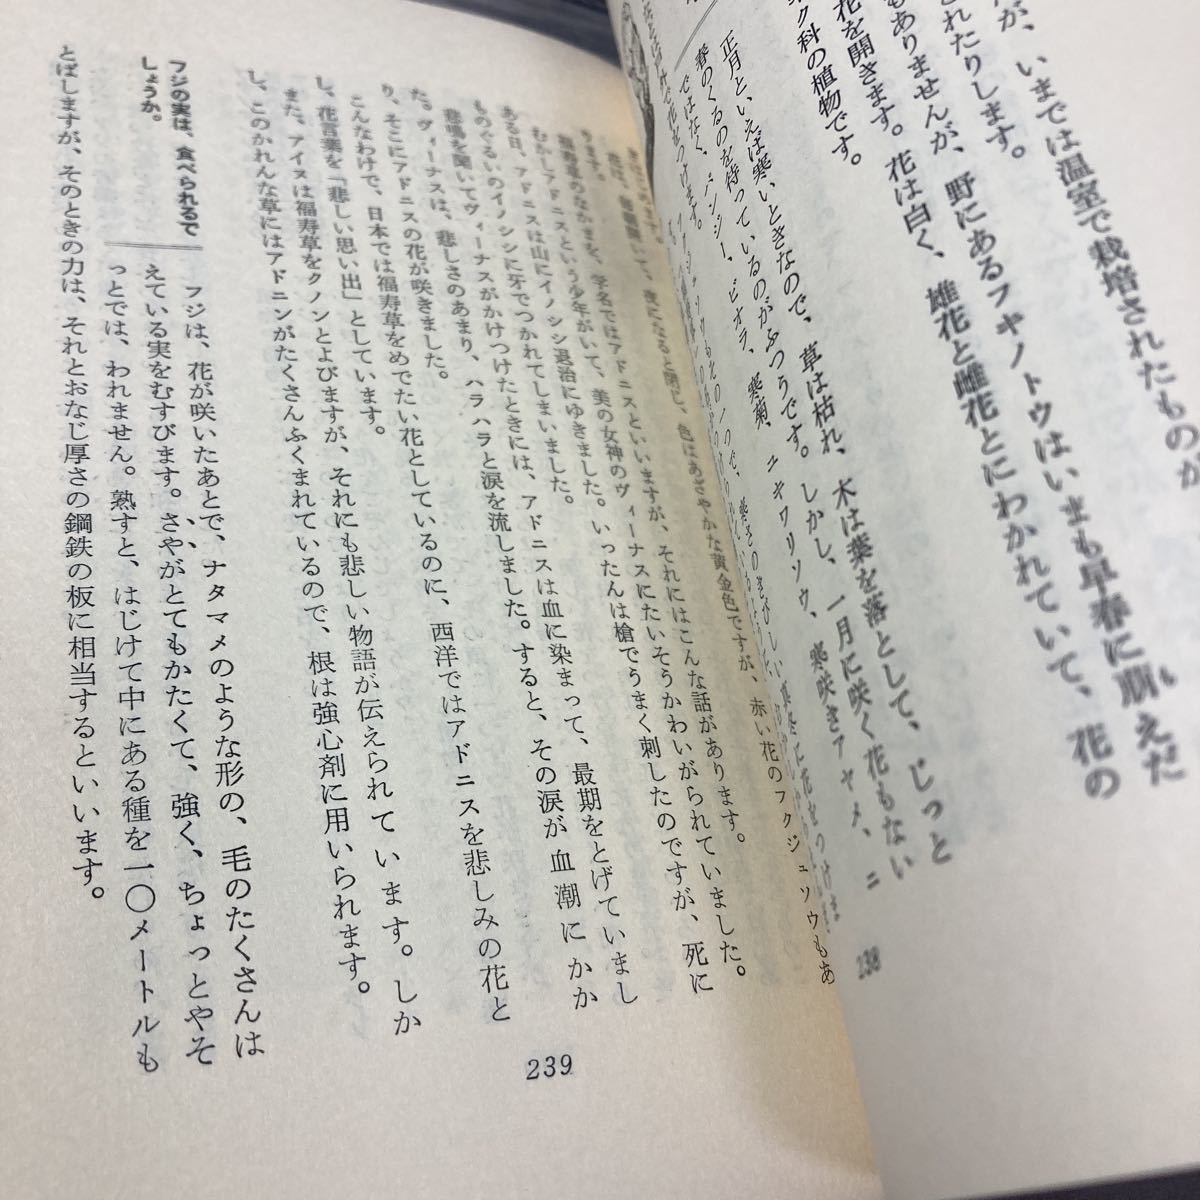 が、いまでは温室で栽培されたものが
とれたりします。
もありませんが、野にあるフキノトウはいまも早春に萠えだ
花を開きます。花は白く、雄花と雌花とにわかれていて、花の
ク科の植物です。
正月といえば寒いときなので、草は枯れ、木は葉を落として、じっと
春のくるのを待っているのがふつうです。しかし、一月に咲く花もない
ではなく、パンジー、ビオラ、寒菊、ユキワリソウ、寒咲きアヤメ、ニ
238
花は、昼
夜になると閉じ、色はあざやかな黄金色ですが、赤い花のフクジュソウもあ
ります。
福寿草のなかまを、学名ではアドニスといいますが、それにはこんな話があります。
むかしアドニスという少年がいて、美の女神のヴィーナスにたいそうかわいがられていました。
ある日、アドニスは山にイノシシ退治にゆきました。いったんは槍でうまく刺したのですが、死に
ものぐるいのイノシシに牙でつかれてしまいました。
悲鳴を聞いてヴィーナスがかけつけたときには、アドニスは血に染まって、最期をとげていまし
た。ヴィーナスは、悲しさのあまり、ハラハラと涙を流しました。すると、その涙が血潮にかか
り、そこにアドニスの花が咲きました。
こんなわけで、日本では福寿草をめでたい花としているのに、西洋ではアドニスを悲しみの花と
し、花言葉を「悲しい思い出」としています。
また、アイヌは福寿草をクノンとよびますが、それにも悲しい物語が伝えられています。しか
し、このかれんな草にはアドニンがたくさんふくまれているので、根は強心剤に用いられます。
フジの実は、食べられるで
しょうか。
フジは、花が咲いたあとで、ナタマメのような形の、毛のたくさんは
えている実をむすびます。さやがとてもかたくて、強く、ちょっとやそ
っとでは、われません。熟すと、はじけて中にある種を一〇メートルも
とばしますが、そのときの力は、それとおなじ厚さの鋼鉄の板に相当するといいます。
239